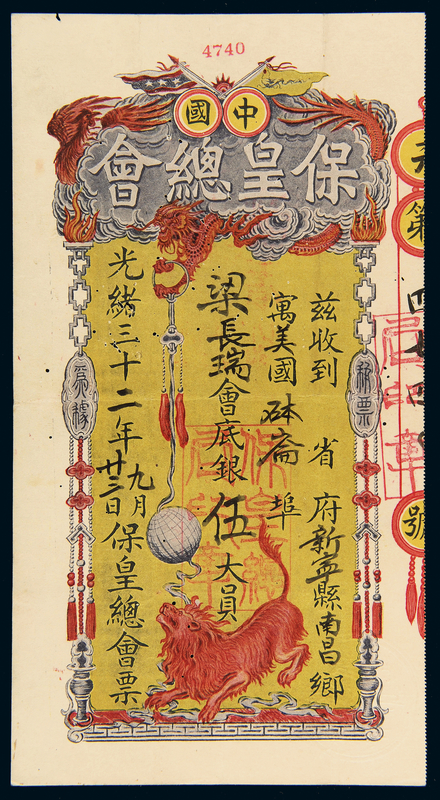 4740
中國
保皇總會
茲收到 省 府新寧縣南昌鄉
寓美國砵崙埠
梁長瑞會底銀伍大員
光緒三十二年九月廿三日保皇總會票
第
四
七
四
號